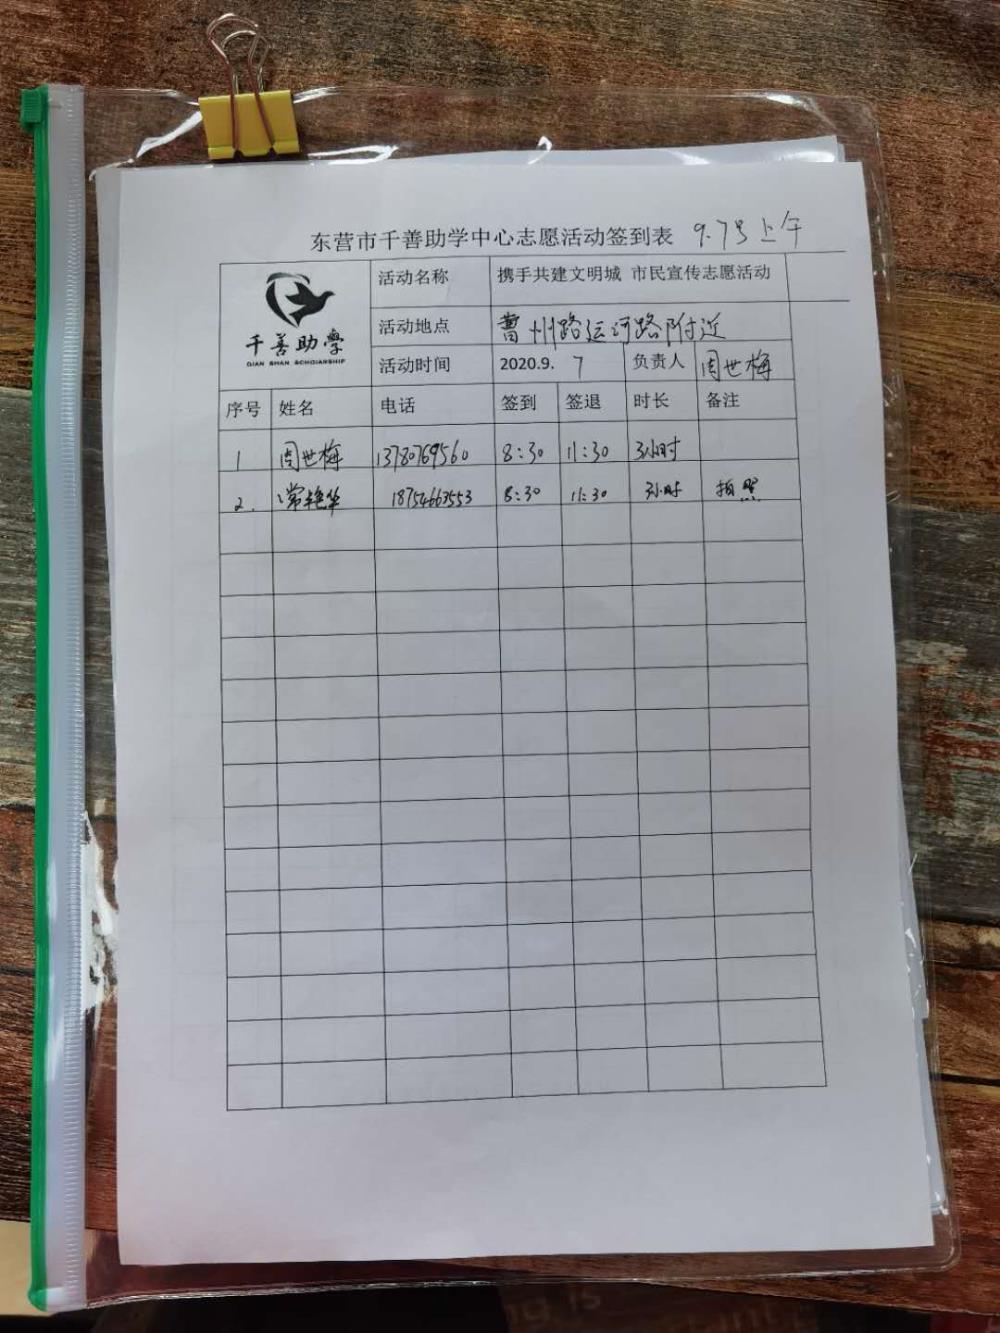 东营市千善助学中心志愿活动签到表 9.7号上午
活动名称 携手共建文明城 市民宣传志愿活动
千善助學
QIAN SHAN SCHOlARSHIP
活动地点 曹州路运河路附近
活动时间 2020.9. 7 负责人 周世梅
序号 姓名 电话 签到 签退 时长 备注
1 周世梅 13780769560 8:30 11:30 3小时
2. 常艳华 18754663553 8:30 11:30 3小时 拍照